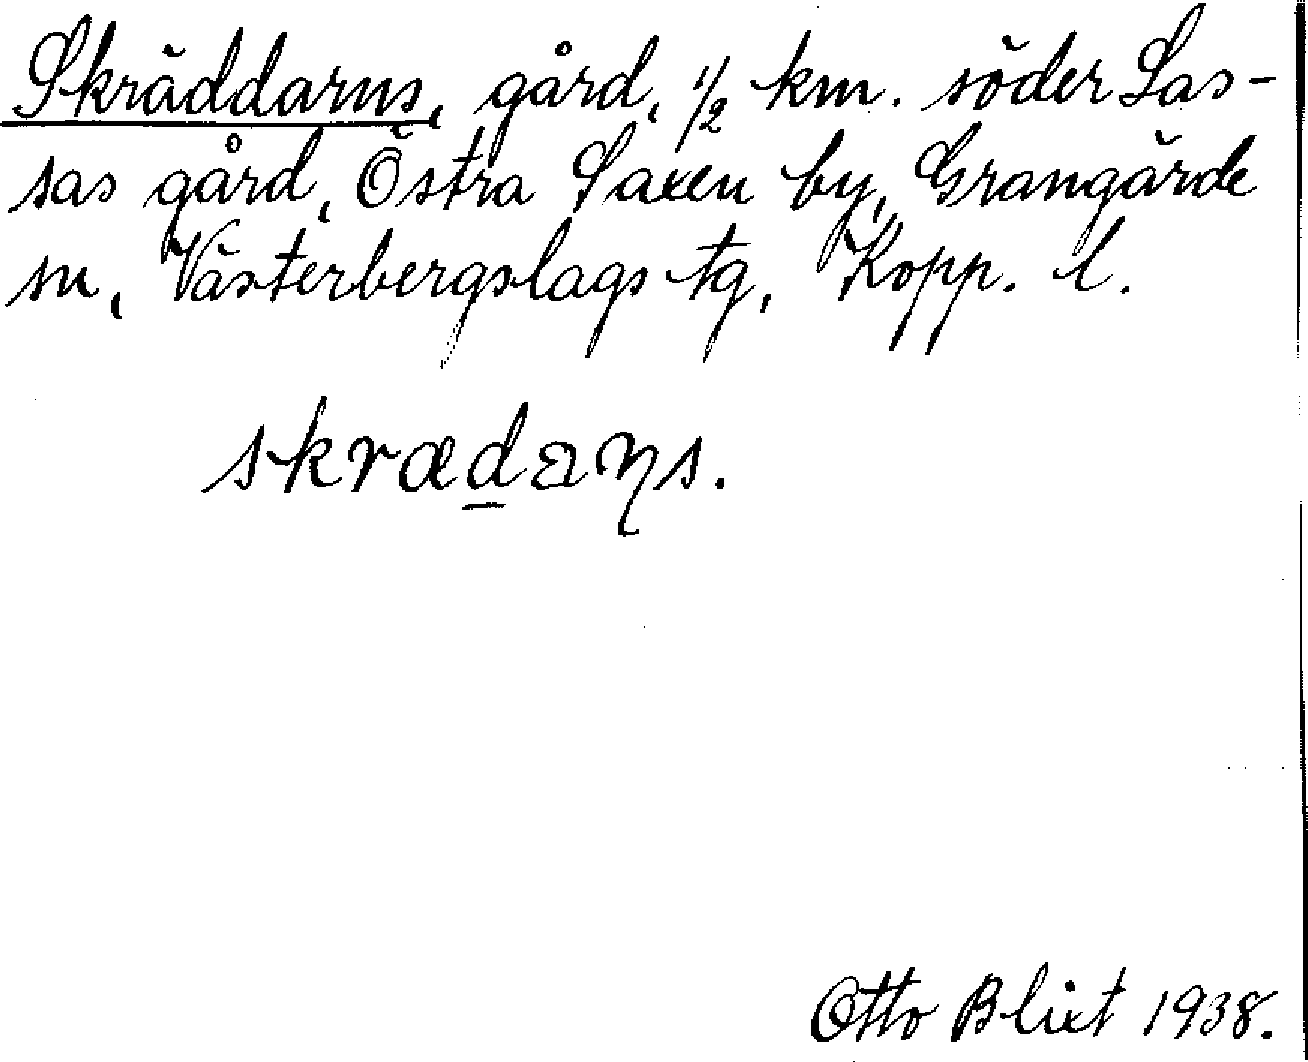 Skräddarns, gård, 1/2 km. söder Las-
sas gård, Östra Saxen by, Grangärde
sn, Västerbergslags tg, Kopp. l.
skræd̲aꞑs.
Otto Blixt 1938.